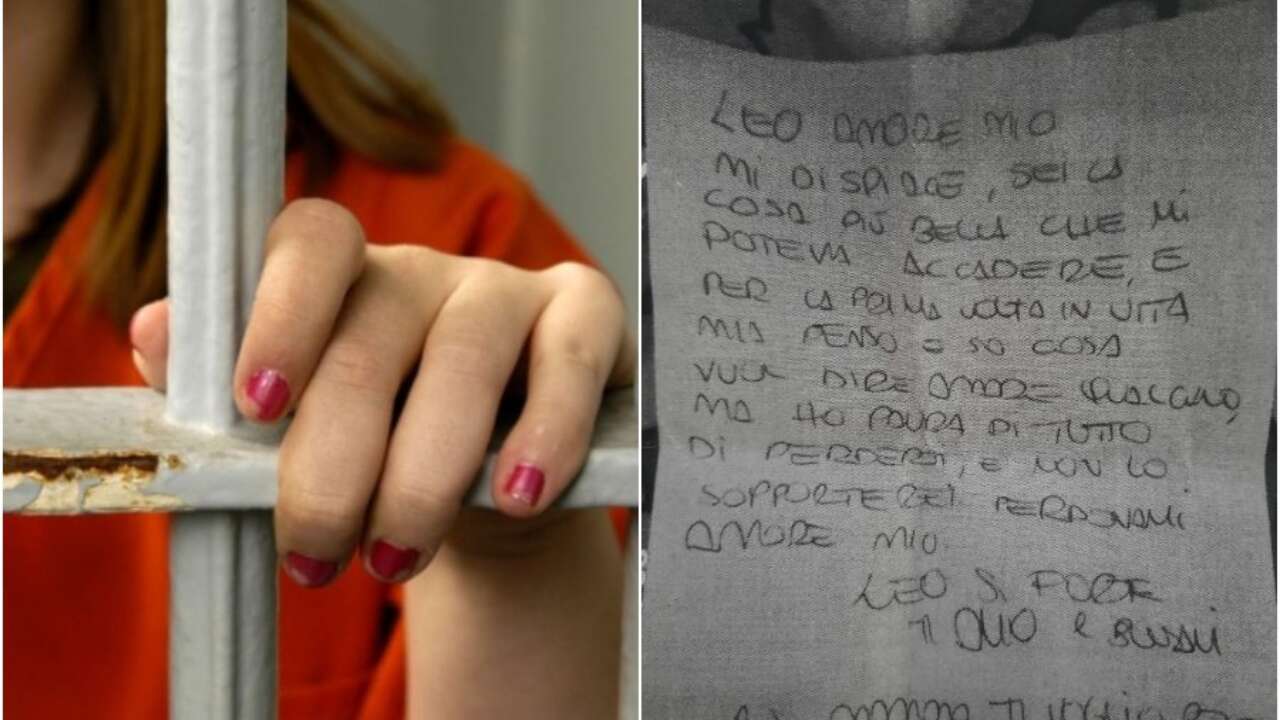 LEO AMORE MIO
MI DISPIACE, SEI LA
COSA PIÙ BELLA CHE MI
POTEVA ACCADERE, E
PER LA PRIMA VOLTA IN VITA
MIA PENSO E SO COSA
VUOL DIRE AMARE QUALCUNO,
MA HO PAURA DI TUTTO
DI PERDERTI, E NON LO
SOPPORTEREI PERDONAMI
AMORE MIO.
LEO SI FORTE
TI AMO E SCUSAMI